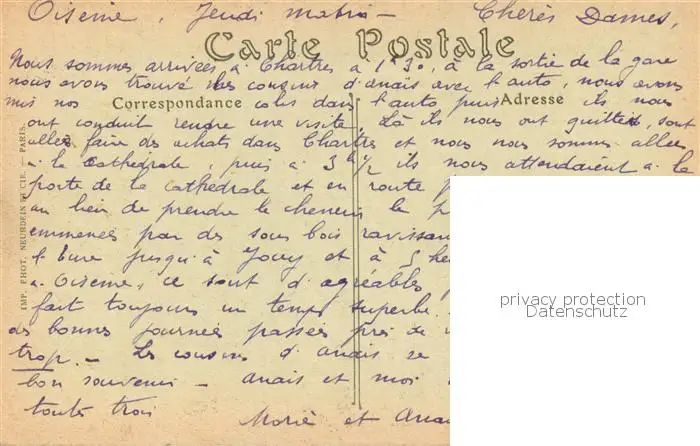 Oiseme, Jeudi matin - Chères Dames,
Carte Postale
Nous sommes arrivées à Chartres à 1h30, à la sortie de la gare
nous avons trouvé les cousins d'Anaïs avec l'auto, nous avons
mis nos colis dans l'auto puis ils nous
Correspondance Adresse
ont conduit rendre une visite. Là ils nous ont quittées, sont
allés faire des achats dans Chartres et nous nous sommes allées
à la cathédrale, puis à 3h 1/2 ils nous attendaient à la
porte de la cathédrale et en route
au lieu de prendre le chemin le
emmenées par des sous bois
l'Eure jusqu'à Jouy et à 5
à Oiseme, ce sont d'agréables
fait toujours un temps superbe
des bonnes journées passées près de
trop. - Les cousins d'Anaïs se
bon souvenir - Anaïs et moi
toutes trois
Marie et
IMP. PHOT. NEURDEIN ET CIE. — PARIS.
privacy protection
Datenschutz